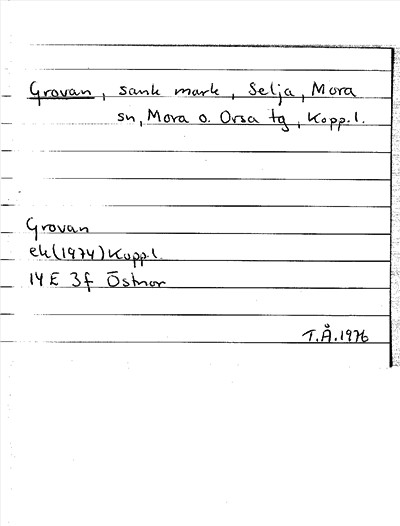 Grovan, sank mark, Selja, Mora
sn, Mora o. Orsa tg, Kopp.l.
Grovan
ek(1974)Kopp.l.
14 E 3f Östnor
T.Å.1976